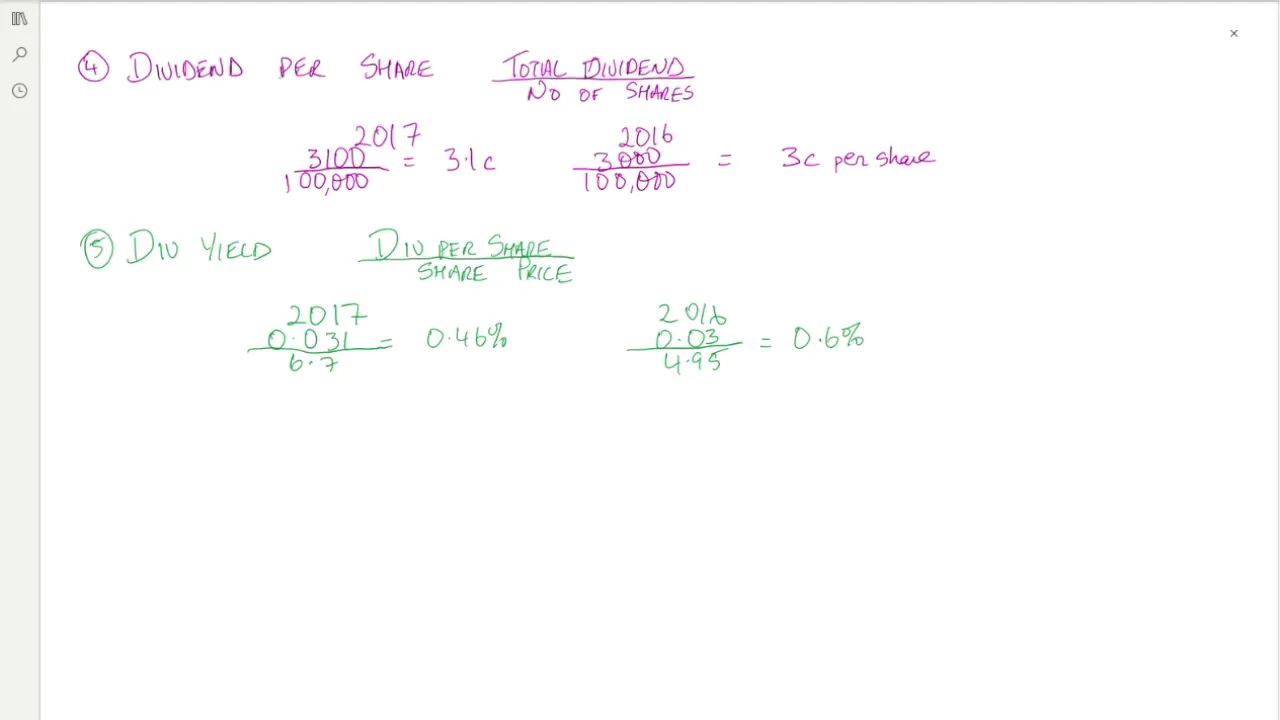 4 DIVIDEND PER SHARE TOTAL DIVIDEND
NO OF SHARES
2017 2016
3100 = 3.1c 3000 = 3c per share
100,000 100,000
5 DIV YIELD DIV PER SHARE
SHARE PRICE
2017 2016
0.031 = 0.46% 0.03 = 0.6%
6.7 4.95